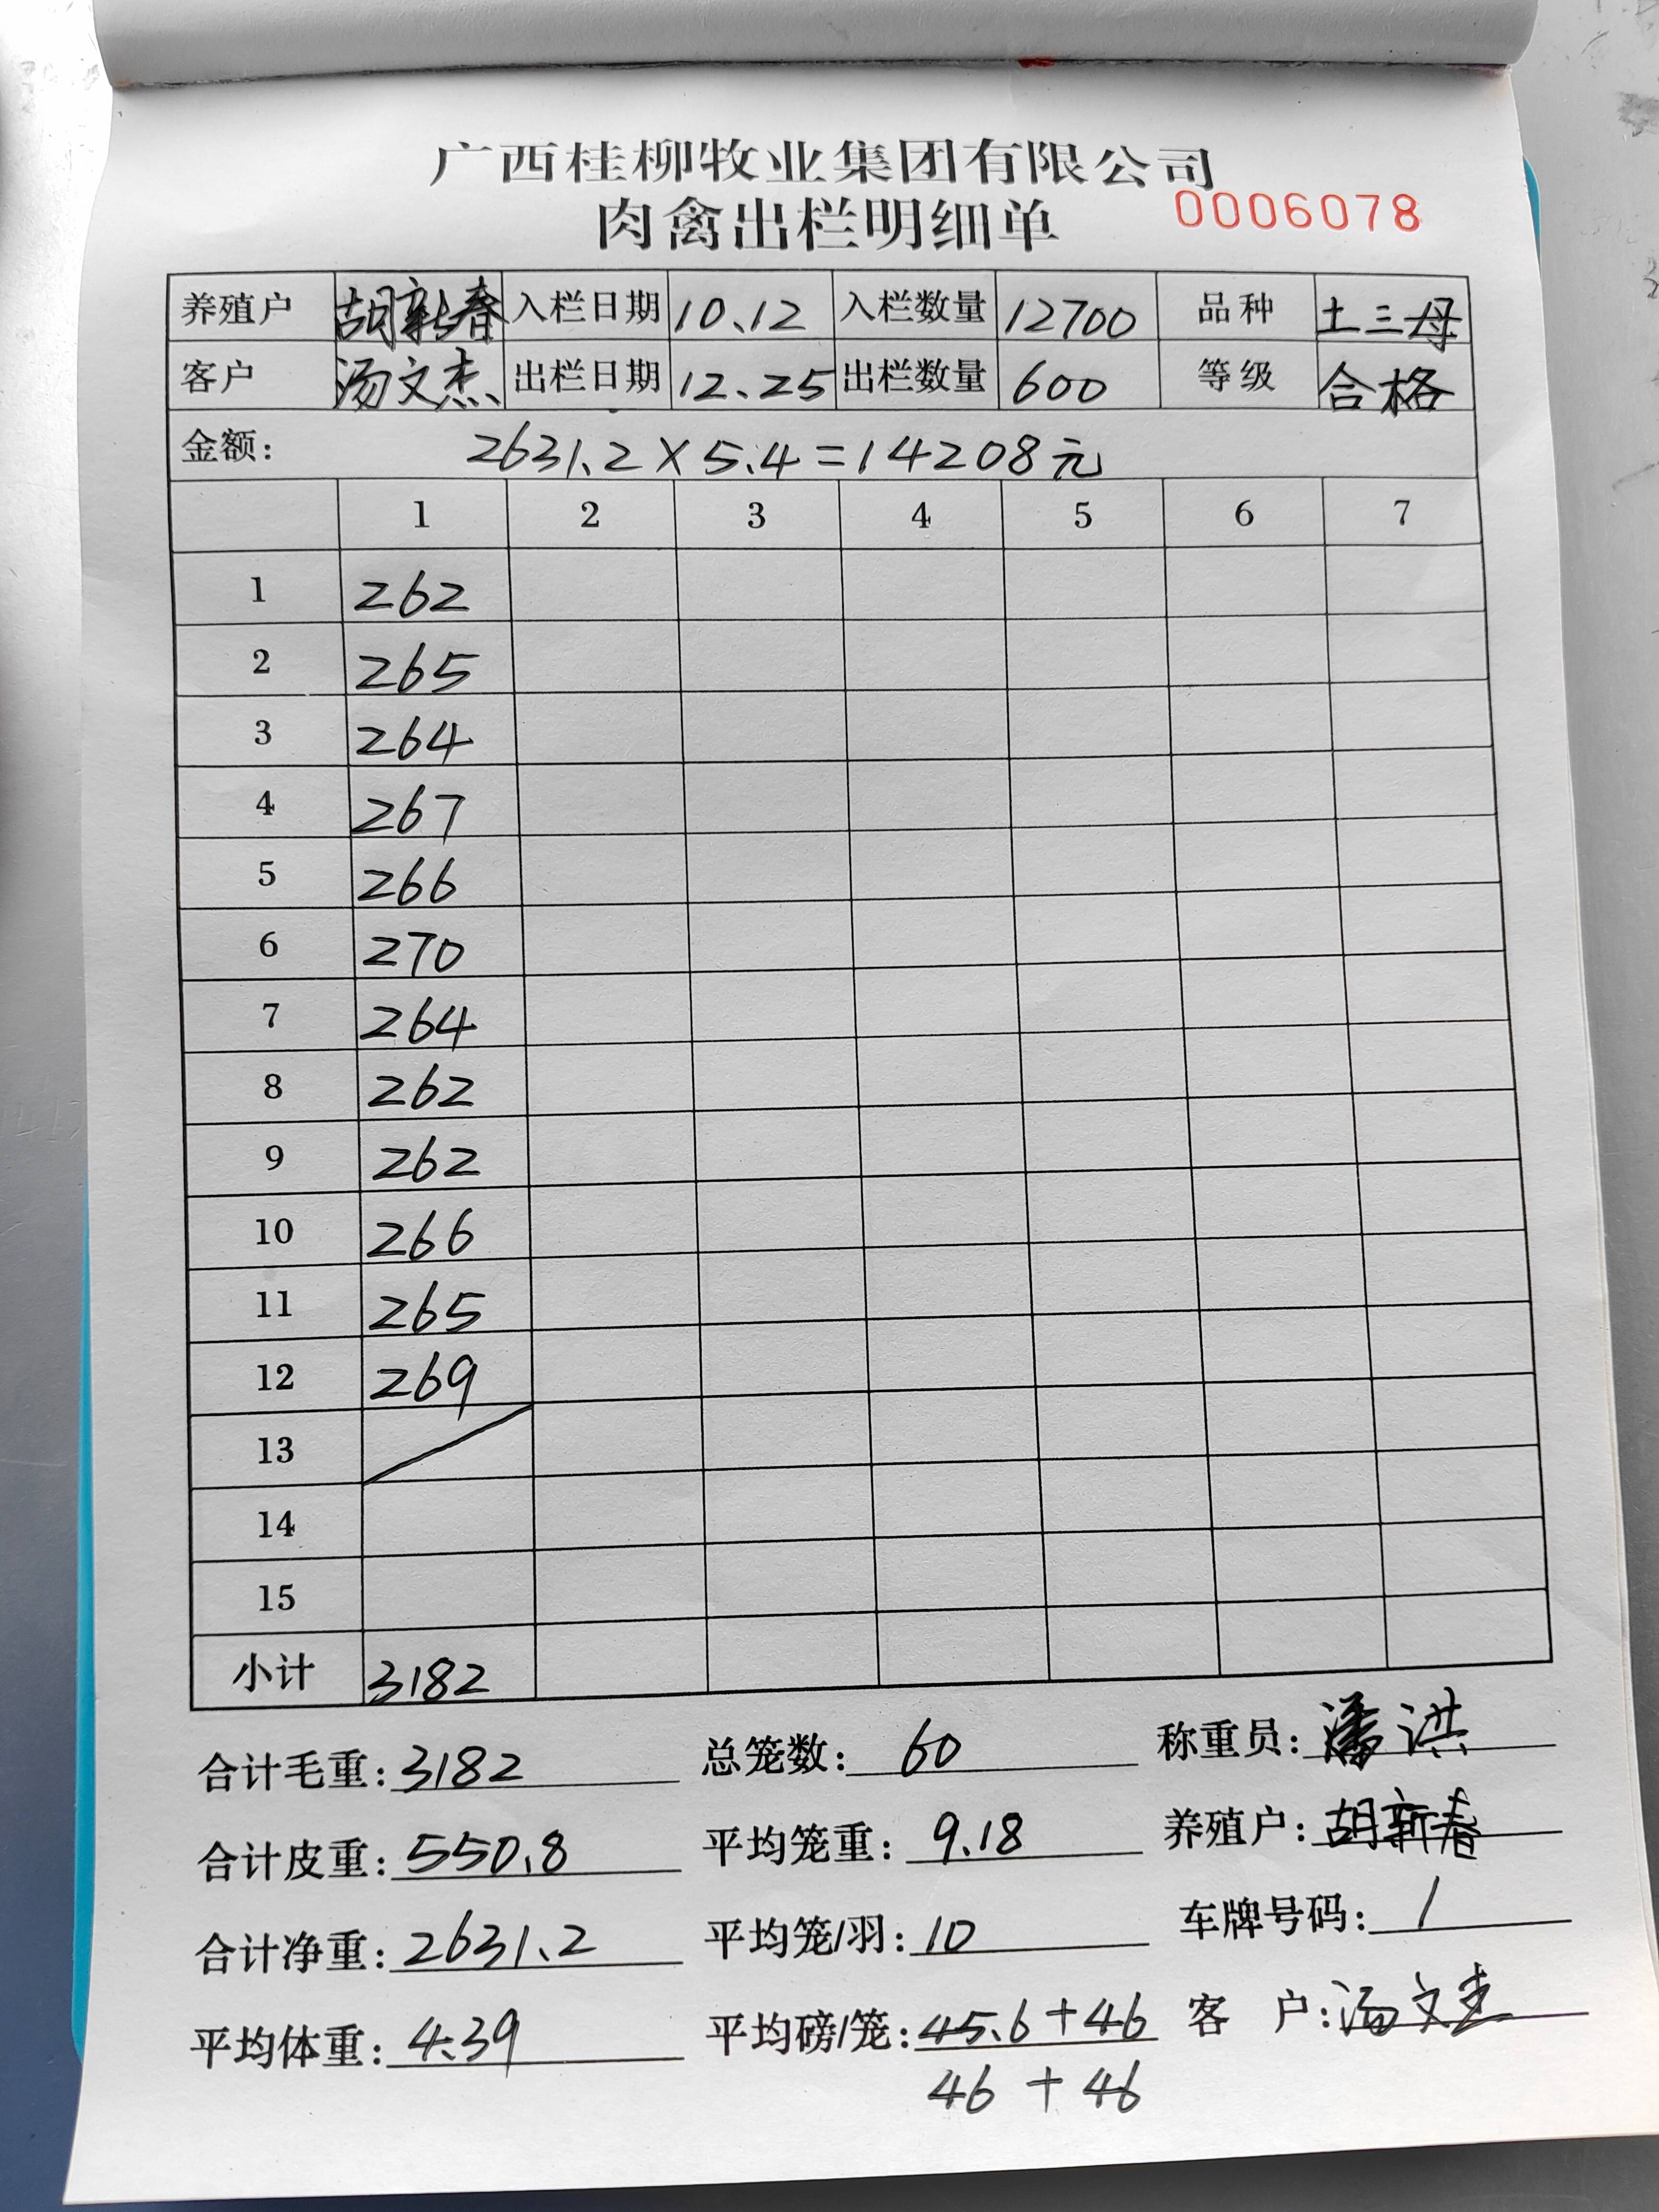 广西桂柳牧业集团有限公司
肉禽出栏明细单 0006078
养殖户 胡新春 入栏日期 10.12 入栏数量 12700 品种 土三母
客户 汤文杰 出栏日期 12.25 出栏数量 600 等级 合格
金额: 2631.2×5.4=14208元
1 2 3 4 5 6 7
1 262
2 265
3 264
4 267
5 266
6 270
7 264
8 262
9 262
10 266
11 265
12 269
13
14
15
小计 3182
合计毛重: 3182 总笼数: 60 称重员: 潘洪
合计皮重: 550.8 平均笼重: 9.18 养殖户: 胡新春
合计净重: 2631.2 平均笼/羽: 10 车牌号码: /
平均体重: 4.39 平均磅/笼: 45.6+46 客户: 汤文杰
46+46